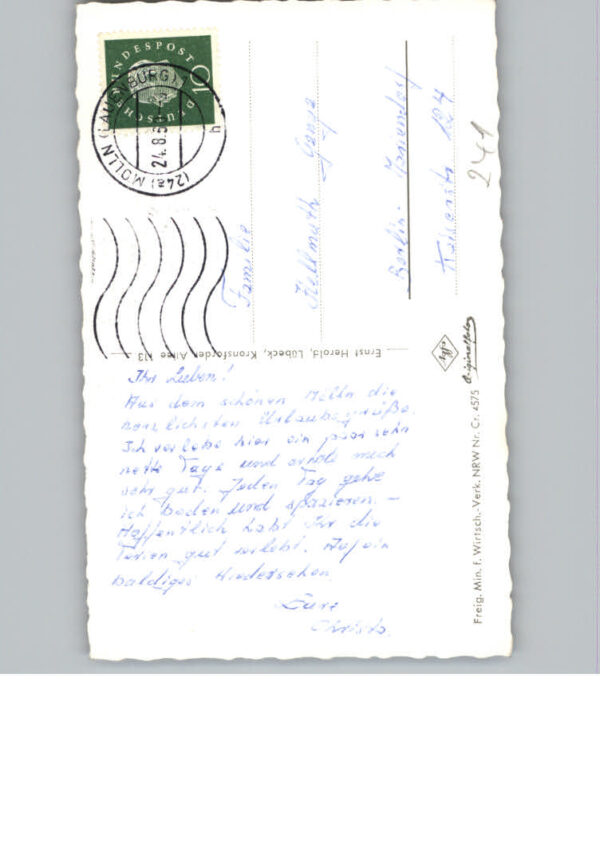 DEUTSCHE BUNDESPOST
10
(24a) MÖLLN (LAUENBURG)
24.8.5
Familie
Hellmuth
Berlin-
Kaiserstr. 124
241
Ernst Herold, Lübeck, Kronsforder Allee 113
Agfa
Originalfoto
Freig. Min. f. Wirtsch.-Verk. NRW Nr. Cr. 4575
Ihr Lieben!
Aus dem schönen Mölln die
herzlichsten Urlaubsgrüße.
Ich verlebe hier ein paar sehr
nette Tage und erhole mich
sehr gut. Jeden Tag gehe
ich baden und spazieren. –
Hoffentlich habt Ihr die
Ferien gut verlebt. Auf ein
baldiges Wiedersehen
Eure
Christa.